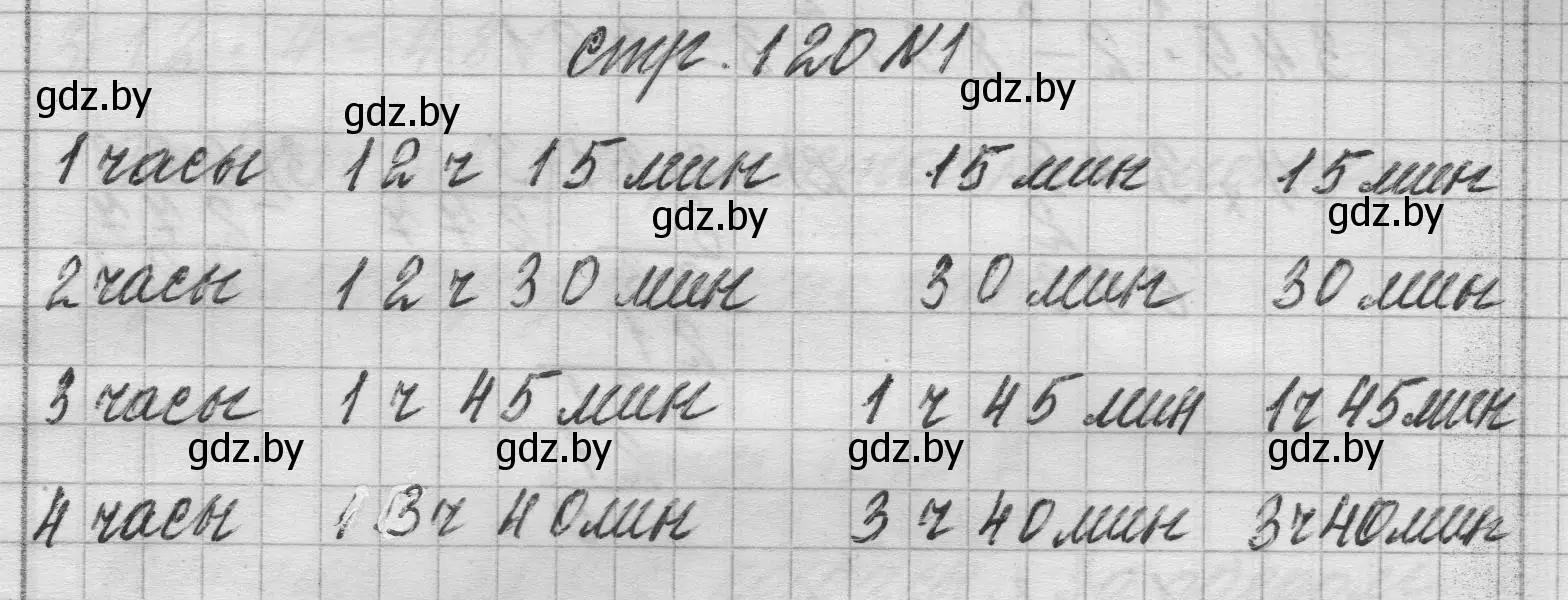 стр. 120 N1
gdz.by gdz.by gdz.by
1 часы 12 ч 15 мин 15 мин 15 мин
gdz.by gdz.by
2 часы 12 ч 30 мин 30 мин 30 мин
3 часы 1 ч 45 мин 1 ч 45 мин 1ч 45мин
gdz.by gdz.by gdz.by gdz.by
4 часы 3ч 40мин 3 ч 40мин 3ч40мин